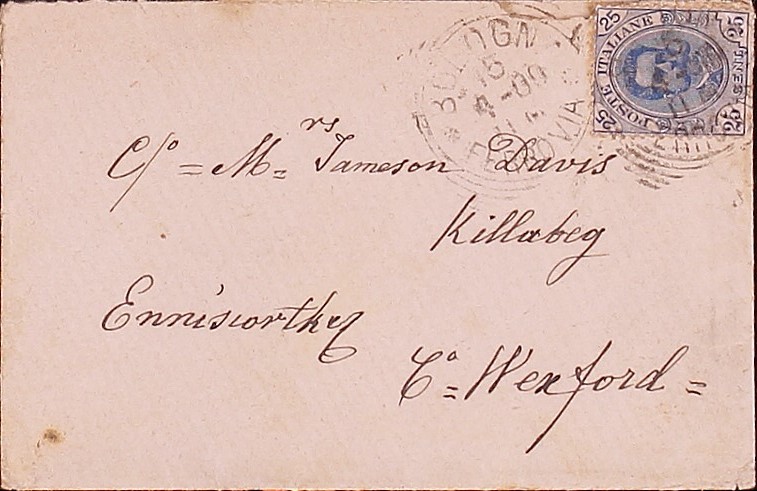 BOLOGNA
15
4-00
FERROVIA
25
POSTE ITALIANE
25
25
25
C/o = Mrs Jameson Davis
Killabeg
Enniscorthy
Co = Wexford =